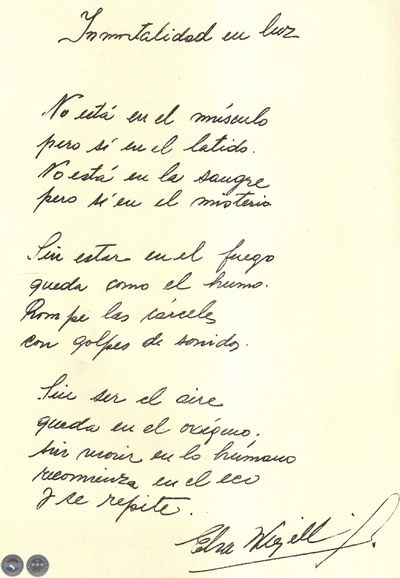 Inmortalidad en luz
No está en el músculo
pero sí en el latido.
No está en la sangre
pero sí en el misterio
Sin estar en el fuego
queda como el humo.
Rompe las cárceles
con golpes de sonidos.
Sin ser el aire
queda en el oxígeno.
Sin morir en lo húmano
recomienza en el eco
y se repite.
Elsa Wiezell